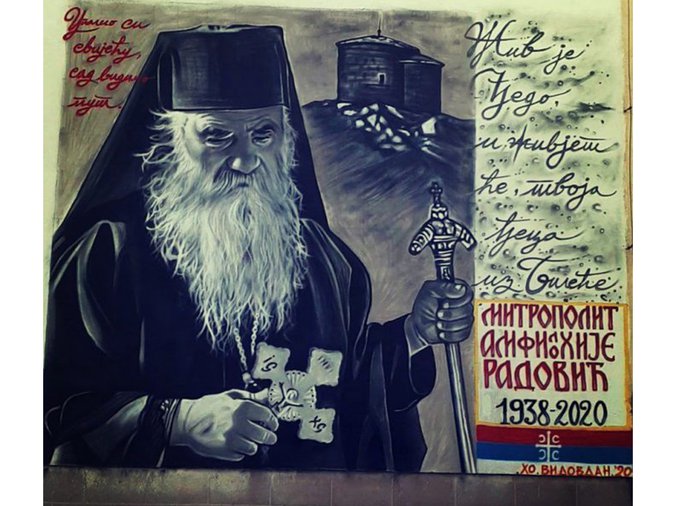 си
свијећу,
сад видимо
пут.
Жив је
Ђедо,
и живјет
ће, твоја
ђеца
из Билеће.
МИТРОПОЛИТ
АМФИЛОХИЈЕ
РАДОВИЋ
1938-2020
"ХО. ВИДОВДАН, '20